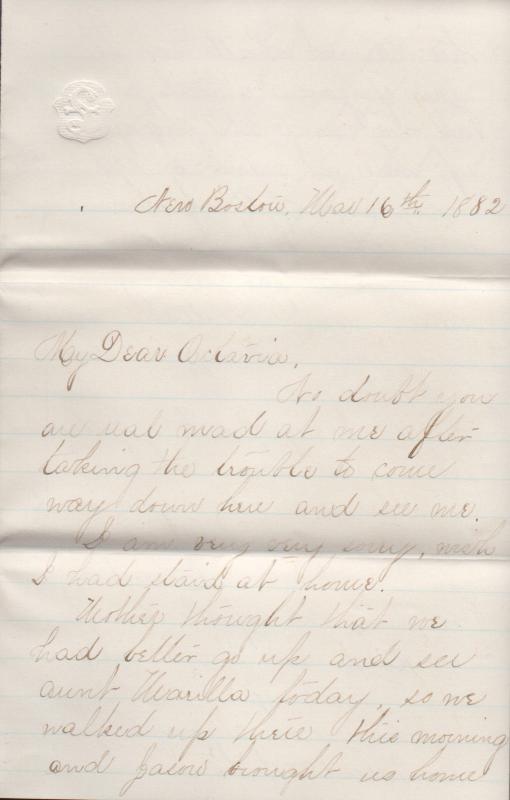 New Boston, Mar 16th 1882
My Dear Octavia,
No doubt you
are real mad at me after
taking the trouble to come
way down here and see me.
I am very very sorry, wish
I had staid at home.
Mother thought that we
had better go up and see
aunt Marilla today, so we
walked up there this morning
and brought us home